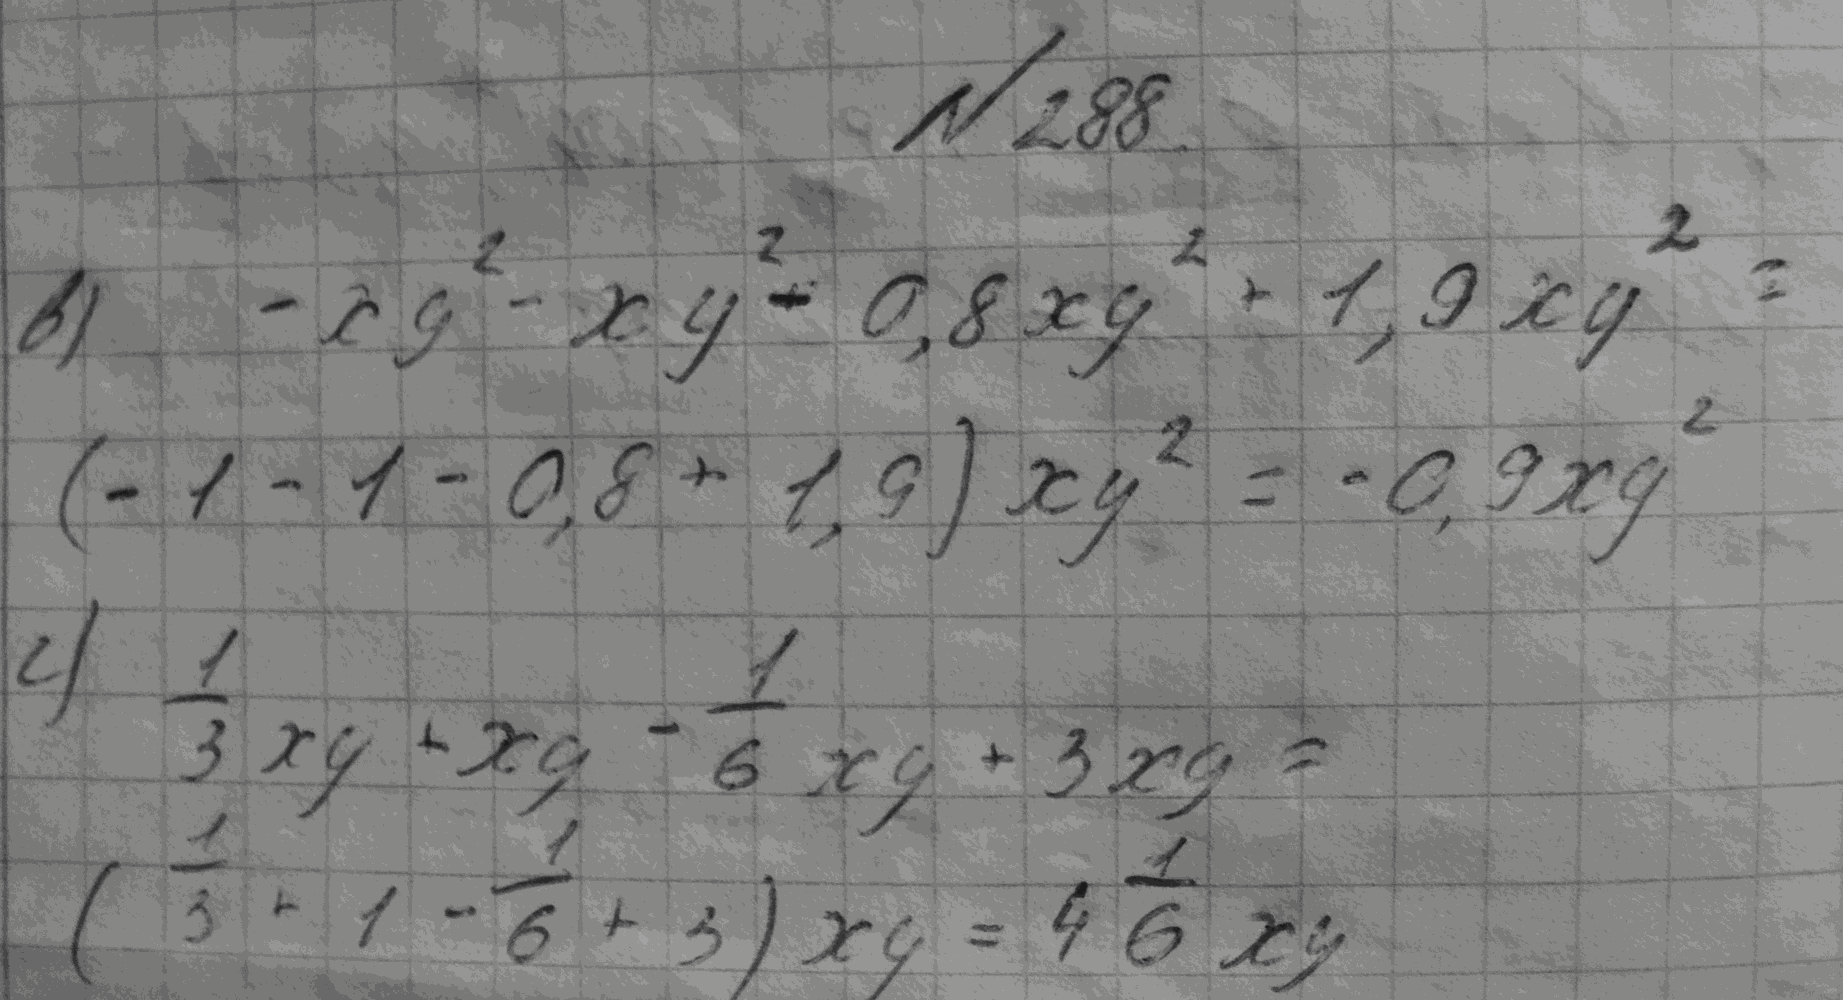 №288.
в) -xy² - xy² - 0,8xy² + 1,9xy² =
(-1 - 1 - 0,8 + 1,9)xy² = -0,9xy²
г) 1/3 xy + xy - 1/6 xy + 3xy =
(1/3 + 1 - 1/6 + 3)xy = 4 1/6 xy